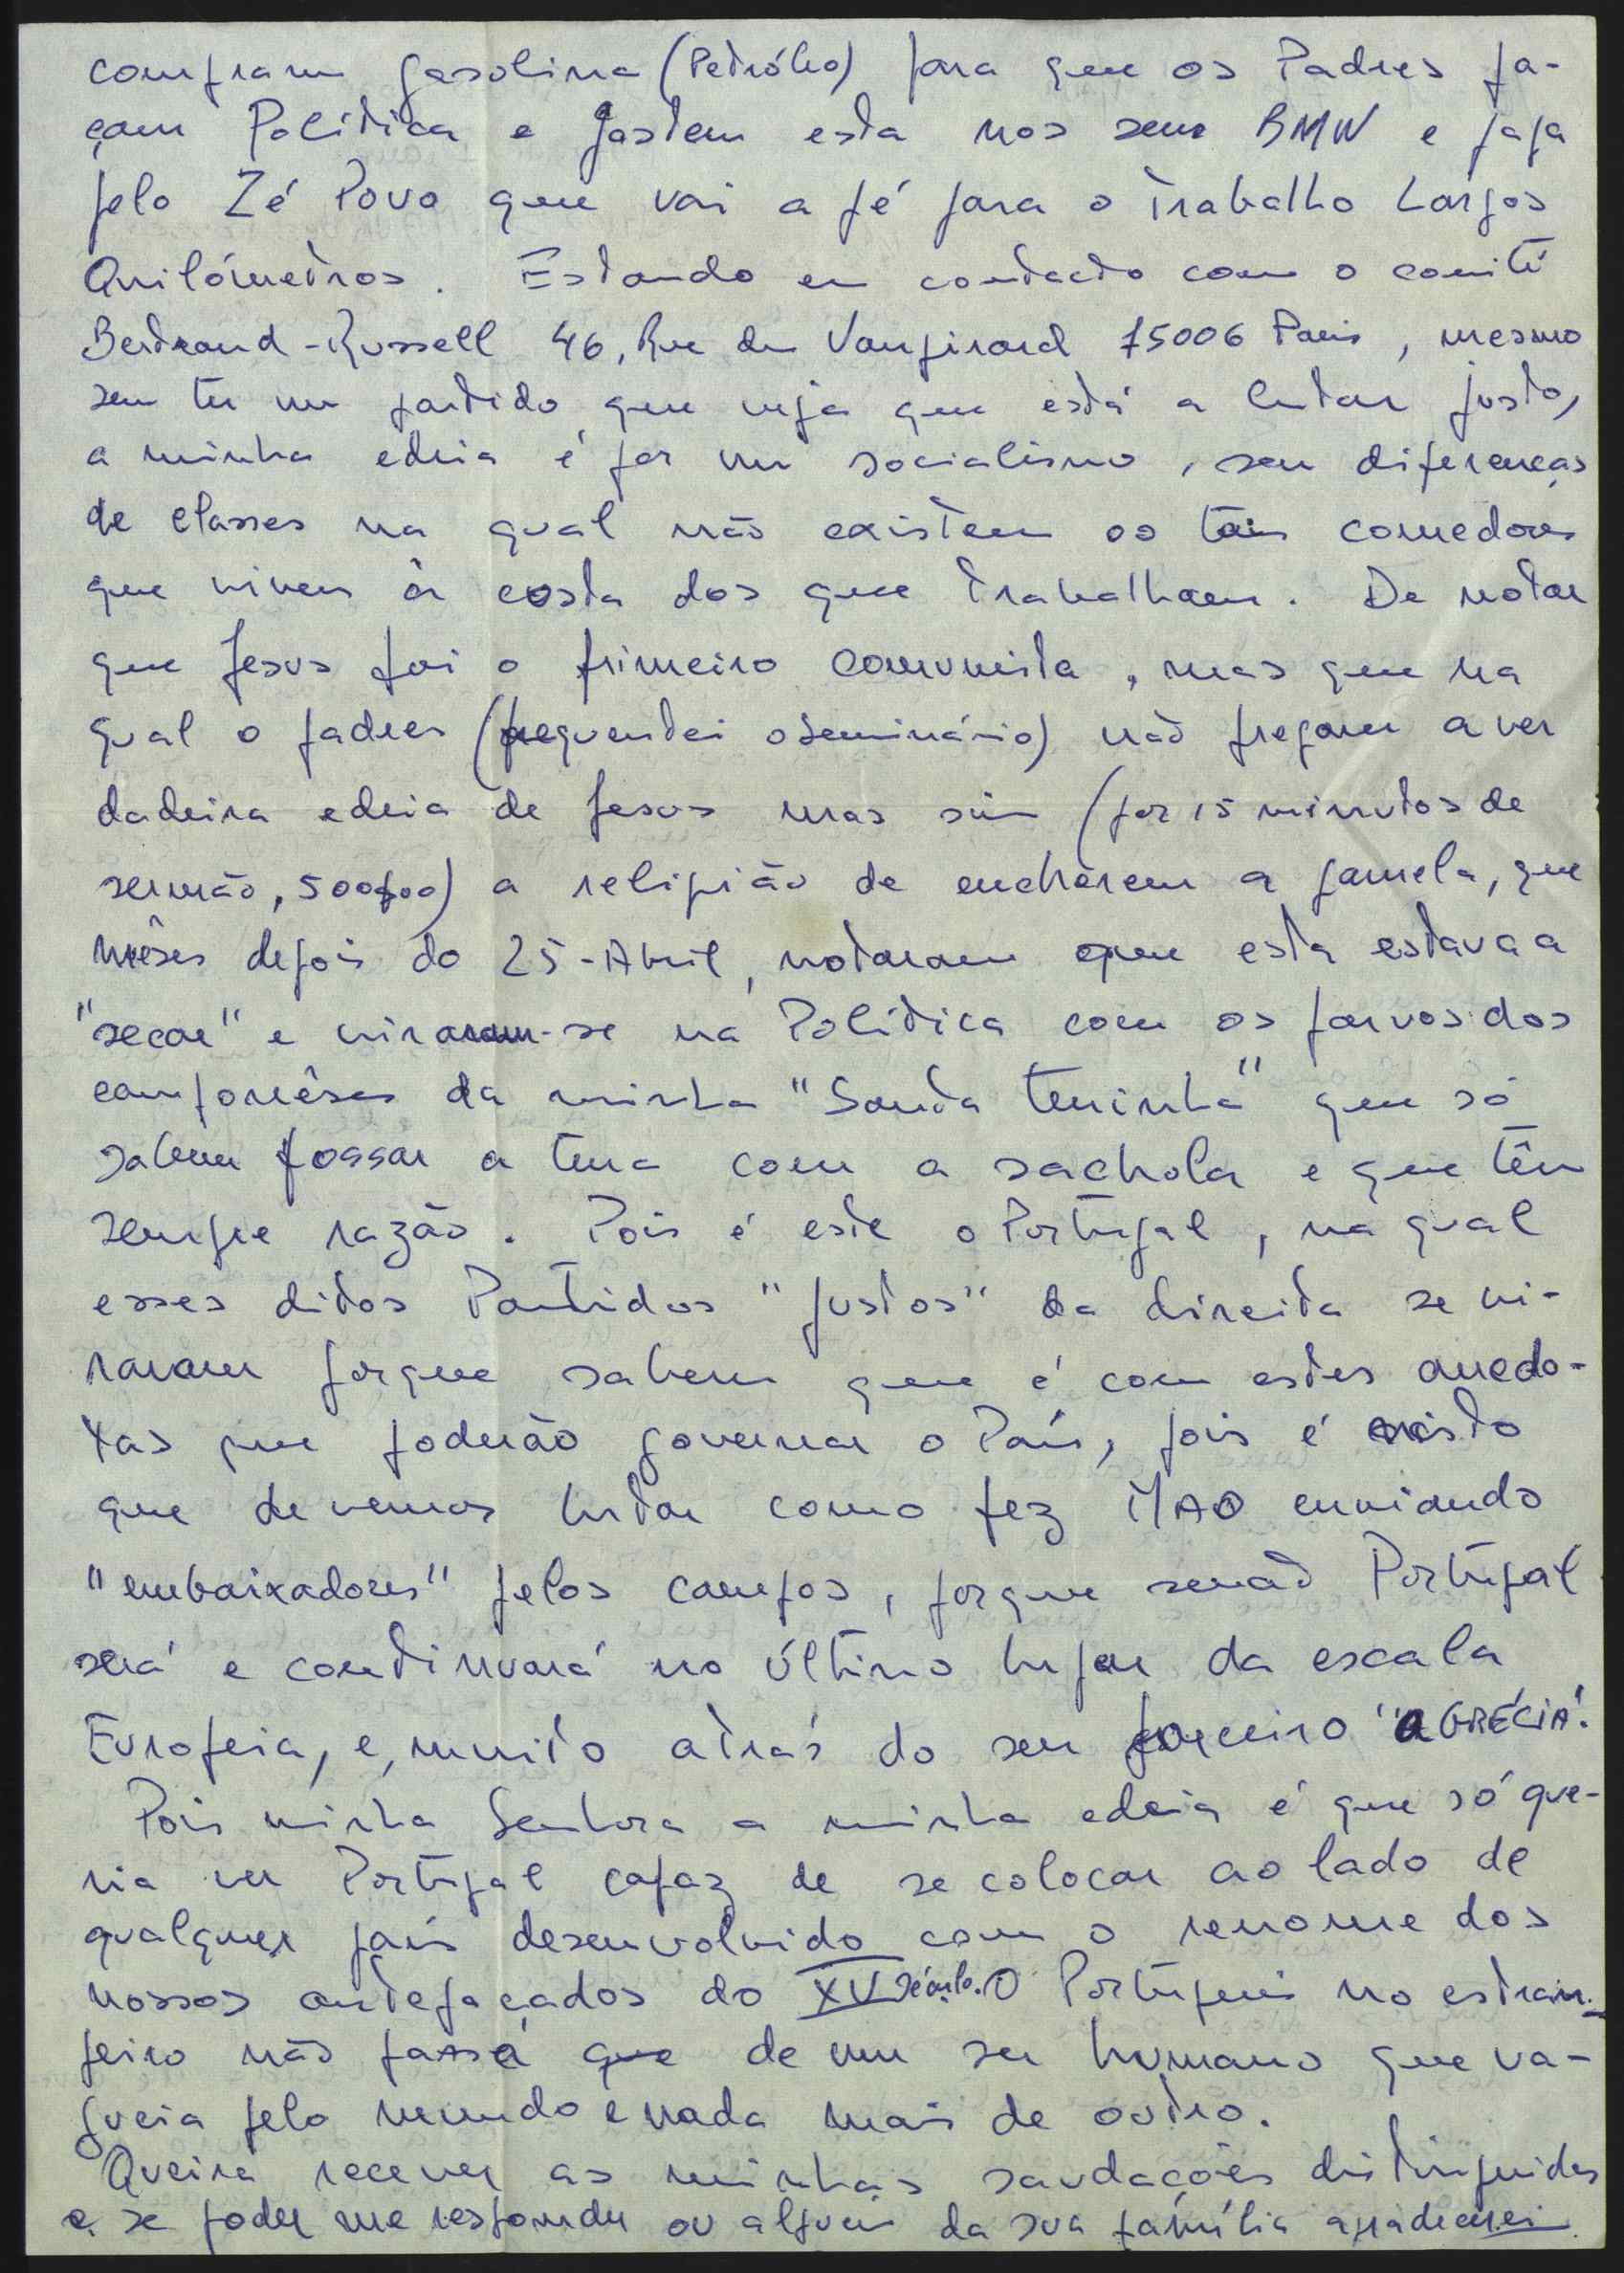 compram gasolina (Petróleo) para que os Padres fa-
çam Política e gastem esta nos seus BMW e paga
pelo Zé Povo que vai a pé para o Trabalho Largos
Quilómetros. Estando em contacto com o comité
Bertrand-Russell 46, Rue de Vaugirard 75006 Paris, mesmo
sem ter um partido que veja que está a lutar justo,
a minha edeia é por um socialismo, sem diferenças
de classes na qual não existem os tais comedores
que vivem à costa dos que trabalham. De notar
que Jesus foi o primeiro comunista, mas que na
qual o padres (frequentei o Seminário) não pregam a ver
dadeira edeia de Jesus mas sim (por 15 minutos de
sermão, 500$00) a religião de encherem a gamela, que
mêses depois do 25-Abril, notaram que esta estava a
"secar" e viraram-se na Política com os parvos dos
camponêses da minha "Santa terrinha" que só
sabem fossar a terra com a sachola e que têm
sempre razão. Pois é este o Portugal, na qual
esses ditos Partidos "justos" da direita se vi-
raram porque sabem que é com estes anedo-
tas que poderão governar o País, pois é nisto
que devemos lutar como fez MAO enviando
"embaixadores" pelos campos, porque senão Portugal
será e continuará no último lugar da escala
Europeia, e, muito atrás do seu parceiro "a GRÉCIA".
Pois minha Senhora a minha edeia é que só que-
ria ver Portugal capaz de se colocar ao lado de
qualquer país desenvolvido com o renome dos
nossos antepaçados do XV século. O Português no estran-
geiro não passa que de um ser humano que va-
gueia pelo mundo e nada mais de outro.
Queira recever as minhas saudações distinguidas
e se poder me responder ou alguém da sua família agradecerei